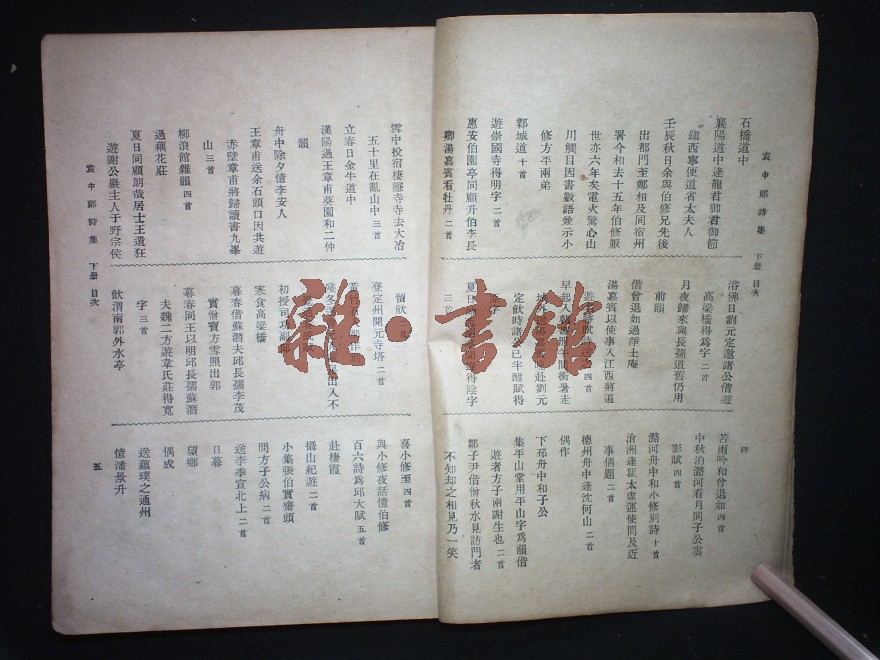 袁中郎詩集 下册 目次
石橋道中
襄陽道中逢龍君御君御節
鎮西寧便道省太夫人
壬辰秋日余與伯修兄先後
出都門至鄭相及同宿州
署今相去十五年伯修厭
世亦六年矣電火驚心山
川觸目因書數語兼示小
修方平兩弟
鄴城道十首
遊崇國寺得明字二首
惠安伯園亭同顧升伯李長
卿湯嘉賓看牡丹二首
浴佛日劉元定邀諸公偕遊
高梁橋得為字二首
月夜歸來與長孺道舊仍用
前韻
偕曾退如過淨土庵
湯嘉賓以使事入江西將過
四首
定飲時諸公已半酣賦得
得陰字
苦雨吟和曾退如四首
中秋泊潞河看月同子公雲
影賦四首
潞河舟中和小修別詩十首
滄洲逢瞿太虛運使間及近
事偶題二首
德州舟中逢沈何山二首
偶作
下邳舟中和子公
集平山堂用平山字為韻偕
遊者方子兩謝生也二首
鄒子尹偕僧秋水見訪門者
不知却之相見乃一笑
四
雲中投宿棲隱寺寺去大冶
五十里在亂山中三首
立春日金牛道中
漢陽過王章甫葵園和二仲
韻
舟中除夕憶李安人
王章甫送余石頭口因共遊
赤壁章甫將歸讀書九峯
山三首
柳浪館雜韻四首
過藕花莊
夏日同顧朗哉居士王遺狂
遊謝公巖主人于野宗侯
留飲
登定州開元寺塔二首
出入不
初授司功副郎
寒食高梁橋
暮春偕蘇潛夫邱長孺李茂
實曾寶方雪照出郭
暮春同王以明邱長孺蘇潛
夫魏二方遊韋氏莊得寬
字三首
飲渭南郭外水亭
喜小修至四首
與小修夜話憶伯修
百六詩為邱大賦五首
赴棲霞
攝山紀遊二首
小集張伯實齋頭
問方子公病二首
送李季宣北上二首
日暮
望鄉
偶成
送蘊璞之通州
憶潘景升
袁中郎詩集 下册 目次
五
雜·書館